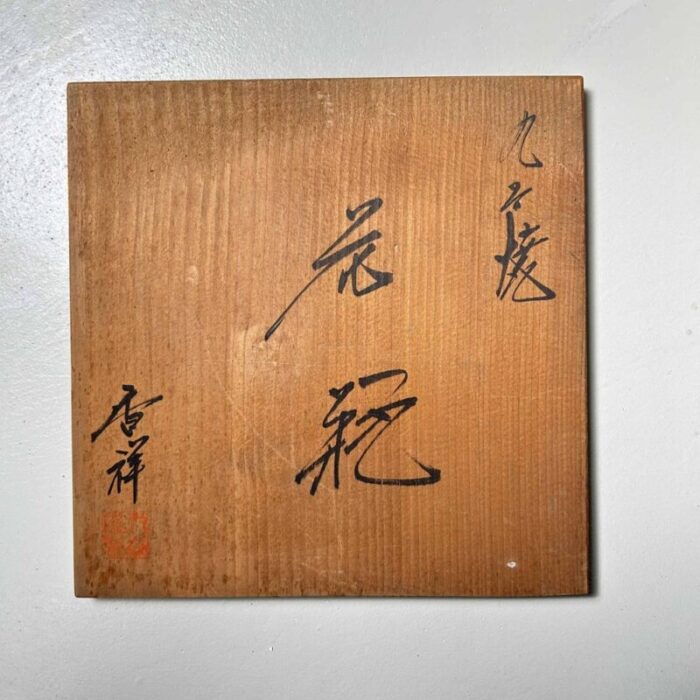 九谷焼
花瓶
香祥